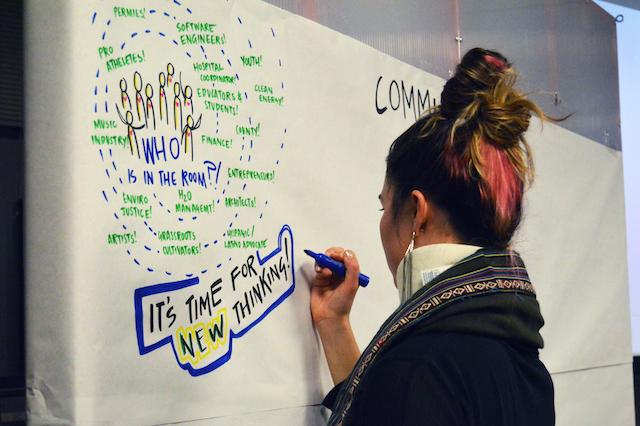 PERMIES!
SOFTWARE
ENGINEERS!
PRO
ATHELETES!
HOSPITAL
COORDINATOR!
YOUTH!
EDUCATORS &
STUDENTS!
CLEAN
ENERGY!
MUSIC
INDUSTRY!
FINANCE!
COUNTY!
WHO
IS IN THE ROOM?!
ENTREPRENEURS!
ENVIRO
JUSTICE!
H2O
MANAGEMT!
ARCHITECTS!
ARTISTS!
GRASSROOTS
CULTIVATORS!
HISPANIC/
LATINO ADVOCATE
IT'S TIME FOR
NEW THINKING!
COMM